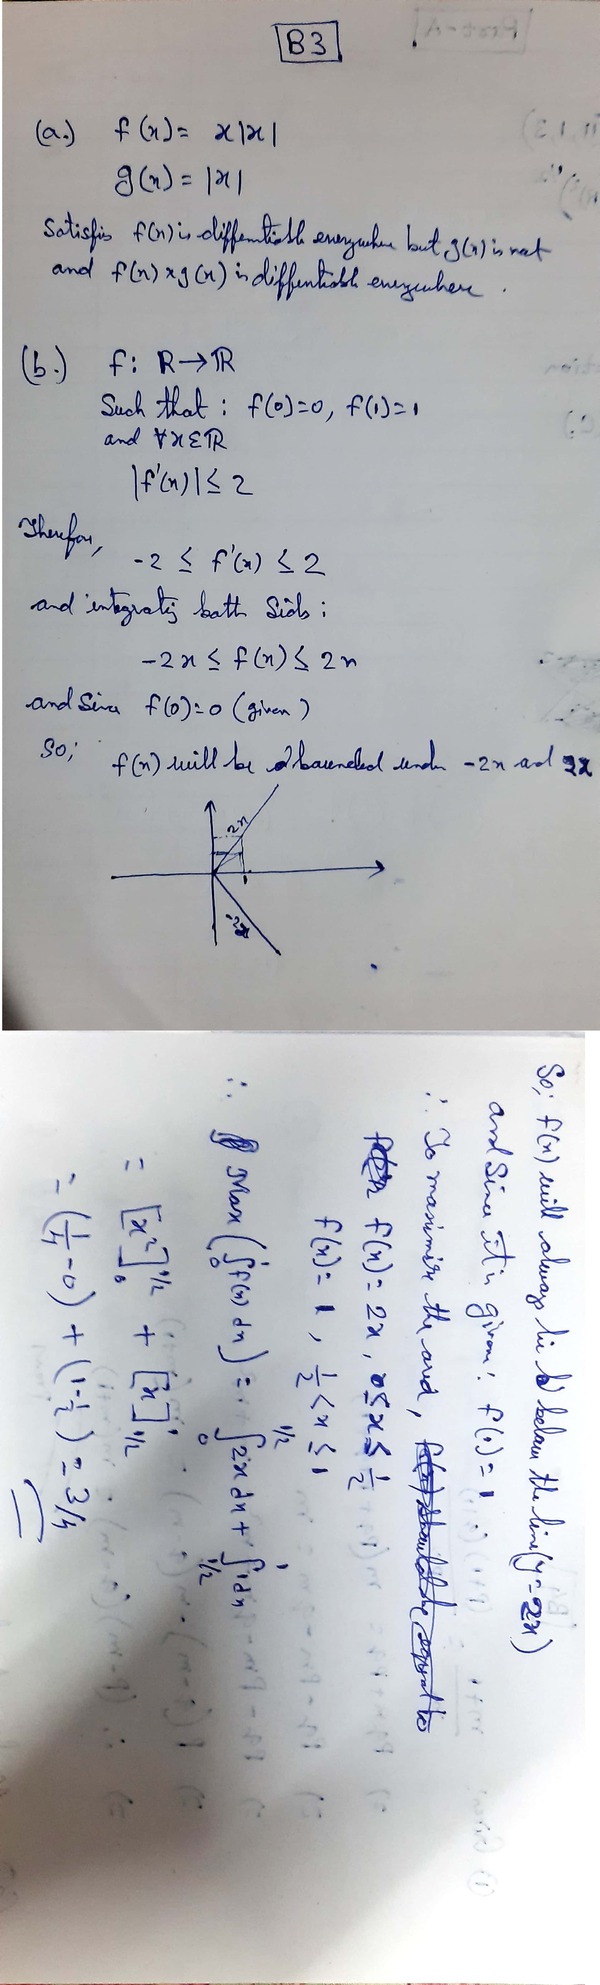 B3
(a.) f(x) = x|x|
g(x) = |x|
Satisfies f(x) is differentiable everywhere but g(x) is not
and f(x) × g(x) is differentiable everywhere.
(b.) f: R→R
Such that: f(0)=0, f(1)=1
and ∀xεR
|f'(x)| ≤ 2
Therefore,
-2 ≤ f'(x) ≤ 2
and integrating both sides:
-2x ≤ f(x) ≤ 2x
and Since f(0)=0 (given)
So; f(x) will be bounded under -2x and 2x
2x
-2x
So; f(x) will always lie below the line (y=2x)
and Since it is given: f(1)=1
∴ To maximise the area,
f(x) = 2x, 0≤x≤1/2
f(x) = 1, 1/2<x≤1
∴ Max(∫₀¹ f(x) dx) = ∫₀^1/2 2x dx + ∫_1/2^1 1 dx
= [x²]₀^1/2 + [x]_1/2^1
= (1/4 - 0) + (1 - 1/2) = 3/4